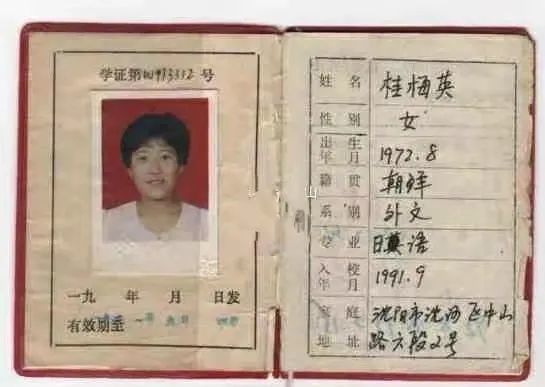 学证第 913312 号
一九 年 月 日发
有效期至
姓名 桂梅英
性别 女
出生年月 1972.8
籍贯 朝鲜
系别 外文
专业 日英语
入校年月 1991.9
家庭地址 沈阳市沈河区中山
路六段2号